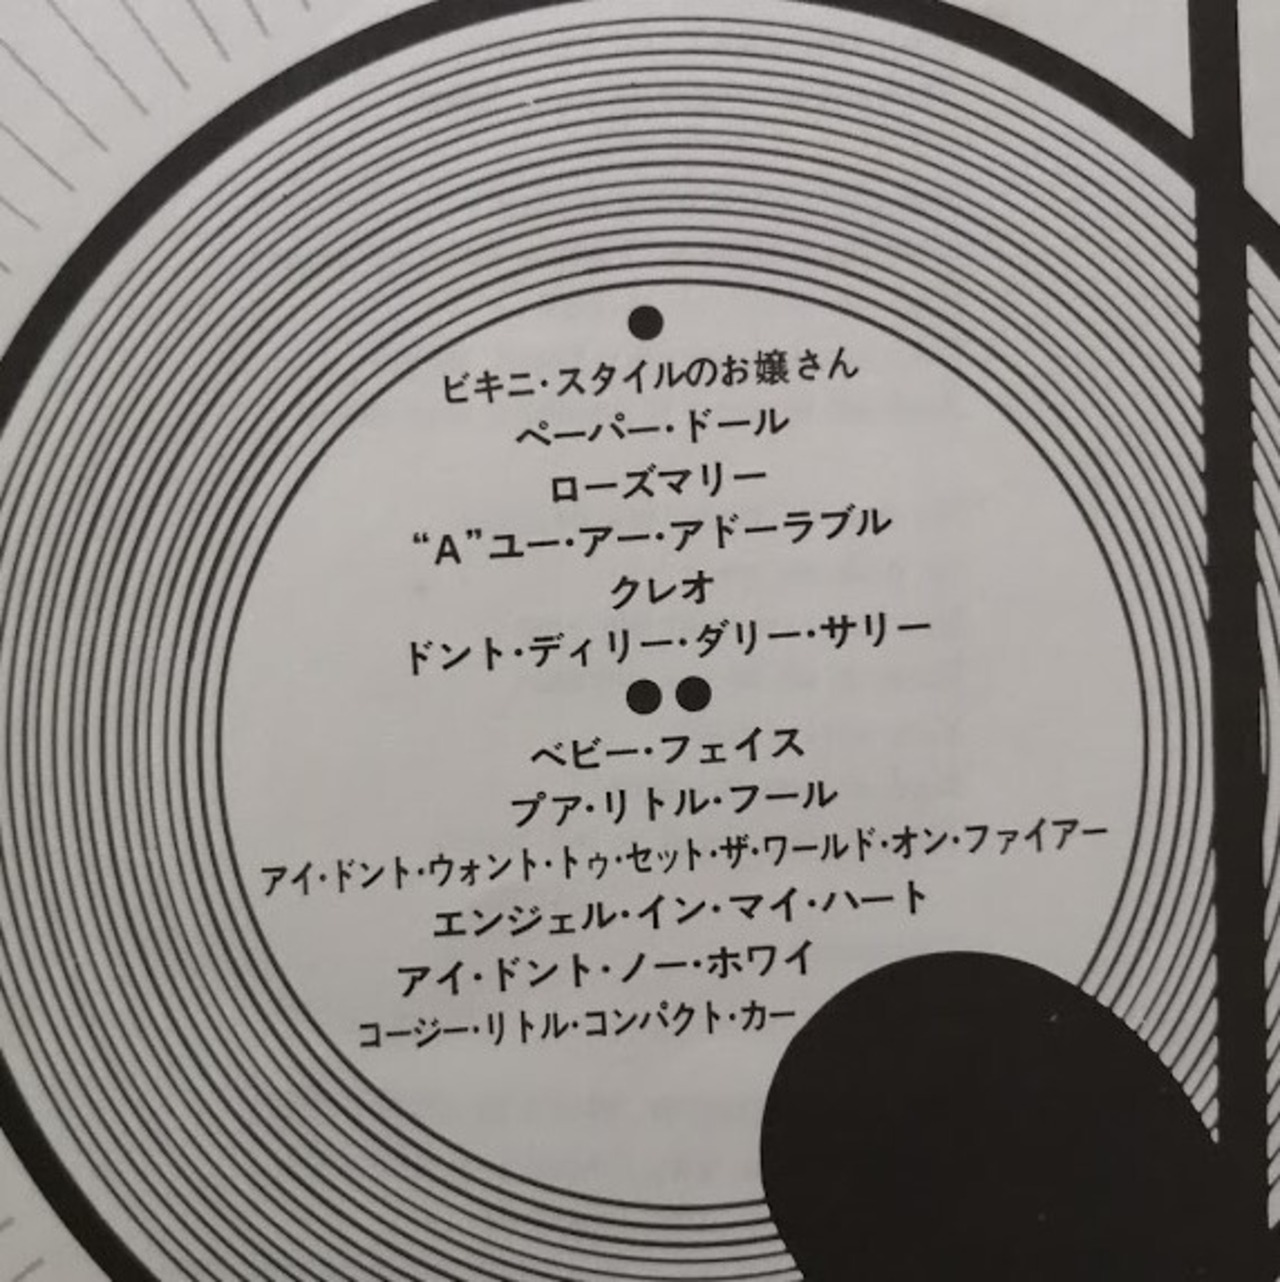 ●
ビキニ・スタイルのお嬢さん
ペーパー・ドール
ローズマリー
“A”ユー・アー・アドーラブル
クレオ
ドント・ディリー・ダリー・サリー
●●
ベビー・フェイス
プア・リトル・フール
アイ・ドント・ウォント・トゥ・セット・ザ・ワールド・オン・ファイアー
エンジェル・イン・マイ・ハート
アイ・ドント・ノー・ホワイ
コージー・リトル・コンパクト・カー